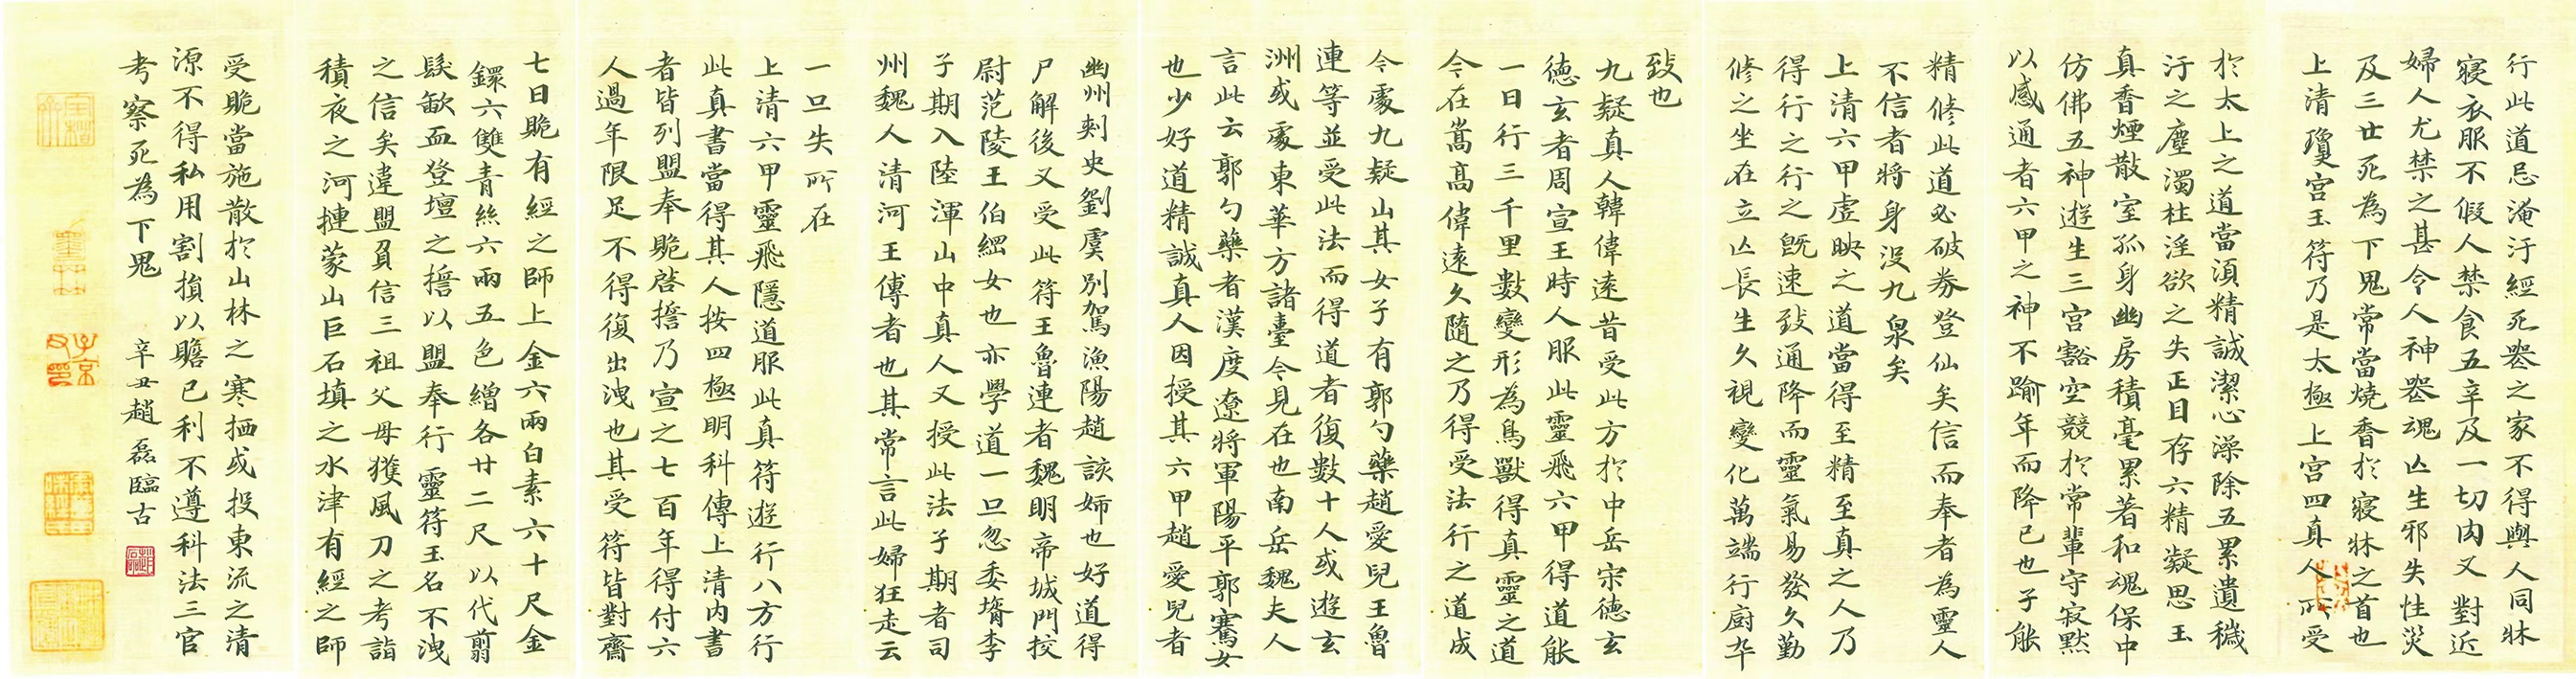 行此道忌淹汙經死喪之家不得與人同牀
寢衣服不假人禁食五辛及一切肉又對近
婦人尤禁之甚令人神喪魂亡生邪失性災
及三世死為下鬼常當燒香於寢牀之首也
上清瓊宮玉符乃是太極上宮四真人所受
於太上之道當須精誠潔心澡除五累遺穢
汙之塵濁杜淫欲之失正目存六精凝思玉
真香煙散室孤身幽房積毫累著和魂保中
仿佛五神遊生三宮豁空競於常輩守寂默
以感通者六甲之神不踰年而降已也子能
精修此道必破券登仙矣信而奉者為靈人
不信者將身沒九泉矣
上清六甲虛映之道當得至精至真之人乃
得行之行之既速致通降而靈氣易發久勤
修之坐在立亡長生久視變化萬端行廚卒
致也
九疑真人韓偉遠昔受此方於中岳宋德玄
德玄者周宣王時人服此靈飛六甲得道能
一日行三千里數變形為鳥獸得真靈之道
今在嵩高偉遠久隨之乃得受法行之道成
今處九疑山其女子有郭勺藥趙愛兒王魯
連等並受此法而得道者復數十人或遊玄
洲或處東華方諸臺今見在也南岳魏夫人
言此云郭勺藥者漢度遼將軍陽平郭騫女
也少好道精誠真人因授其六甲趙愛兒者
幽州刺史劉虞別駕漁陽趙該姉也好道得
尸解後又受此符王魯連者魏明帝城門挍
尉范陵王伯綱女也亦學道一旦忽委壻李
子期入陸渾山中真人又授此法子期者司
州魏人清河王傳者也其常言此婦狂走云
一旦失所在
上清六甲靈飛隱道服此真符遊行八方行
此真書當得其人按四極明科傳上清內書
者皆列盟奉貺啓誓乃宣之七百年得付六
人過年限足不得復出洩也其受符皆對齋
七日貺有經之師上金六兩白素六十尺金
鐶六雙青絲六兩五色繒各廿二尺以代翦
髮歃血登壇之誓以盟奉行靈符玉名不洩
之信矣違盟負信三祖父母獲風刀之考詣
積夜之河摙蒙山巨石填之水津有經之師
受貺當施散於山林之寒栖或投東流之清
源不得私用割損以贍己利不遵科法三官
考察死為下鬼
辛丑趙磊臨古
子京